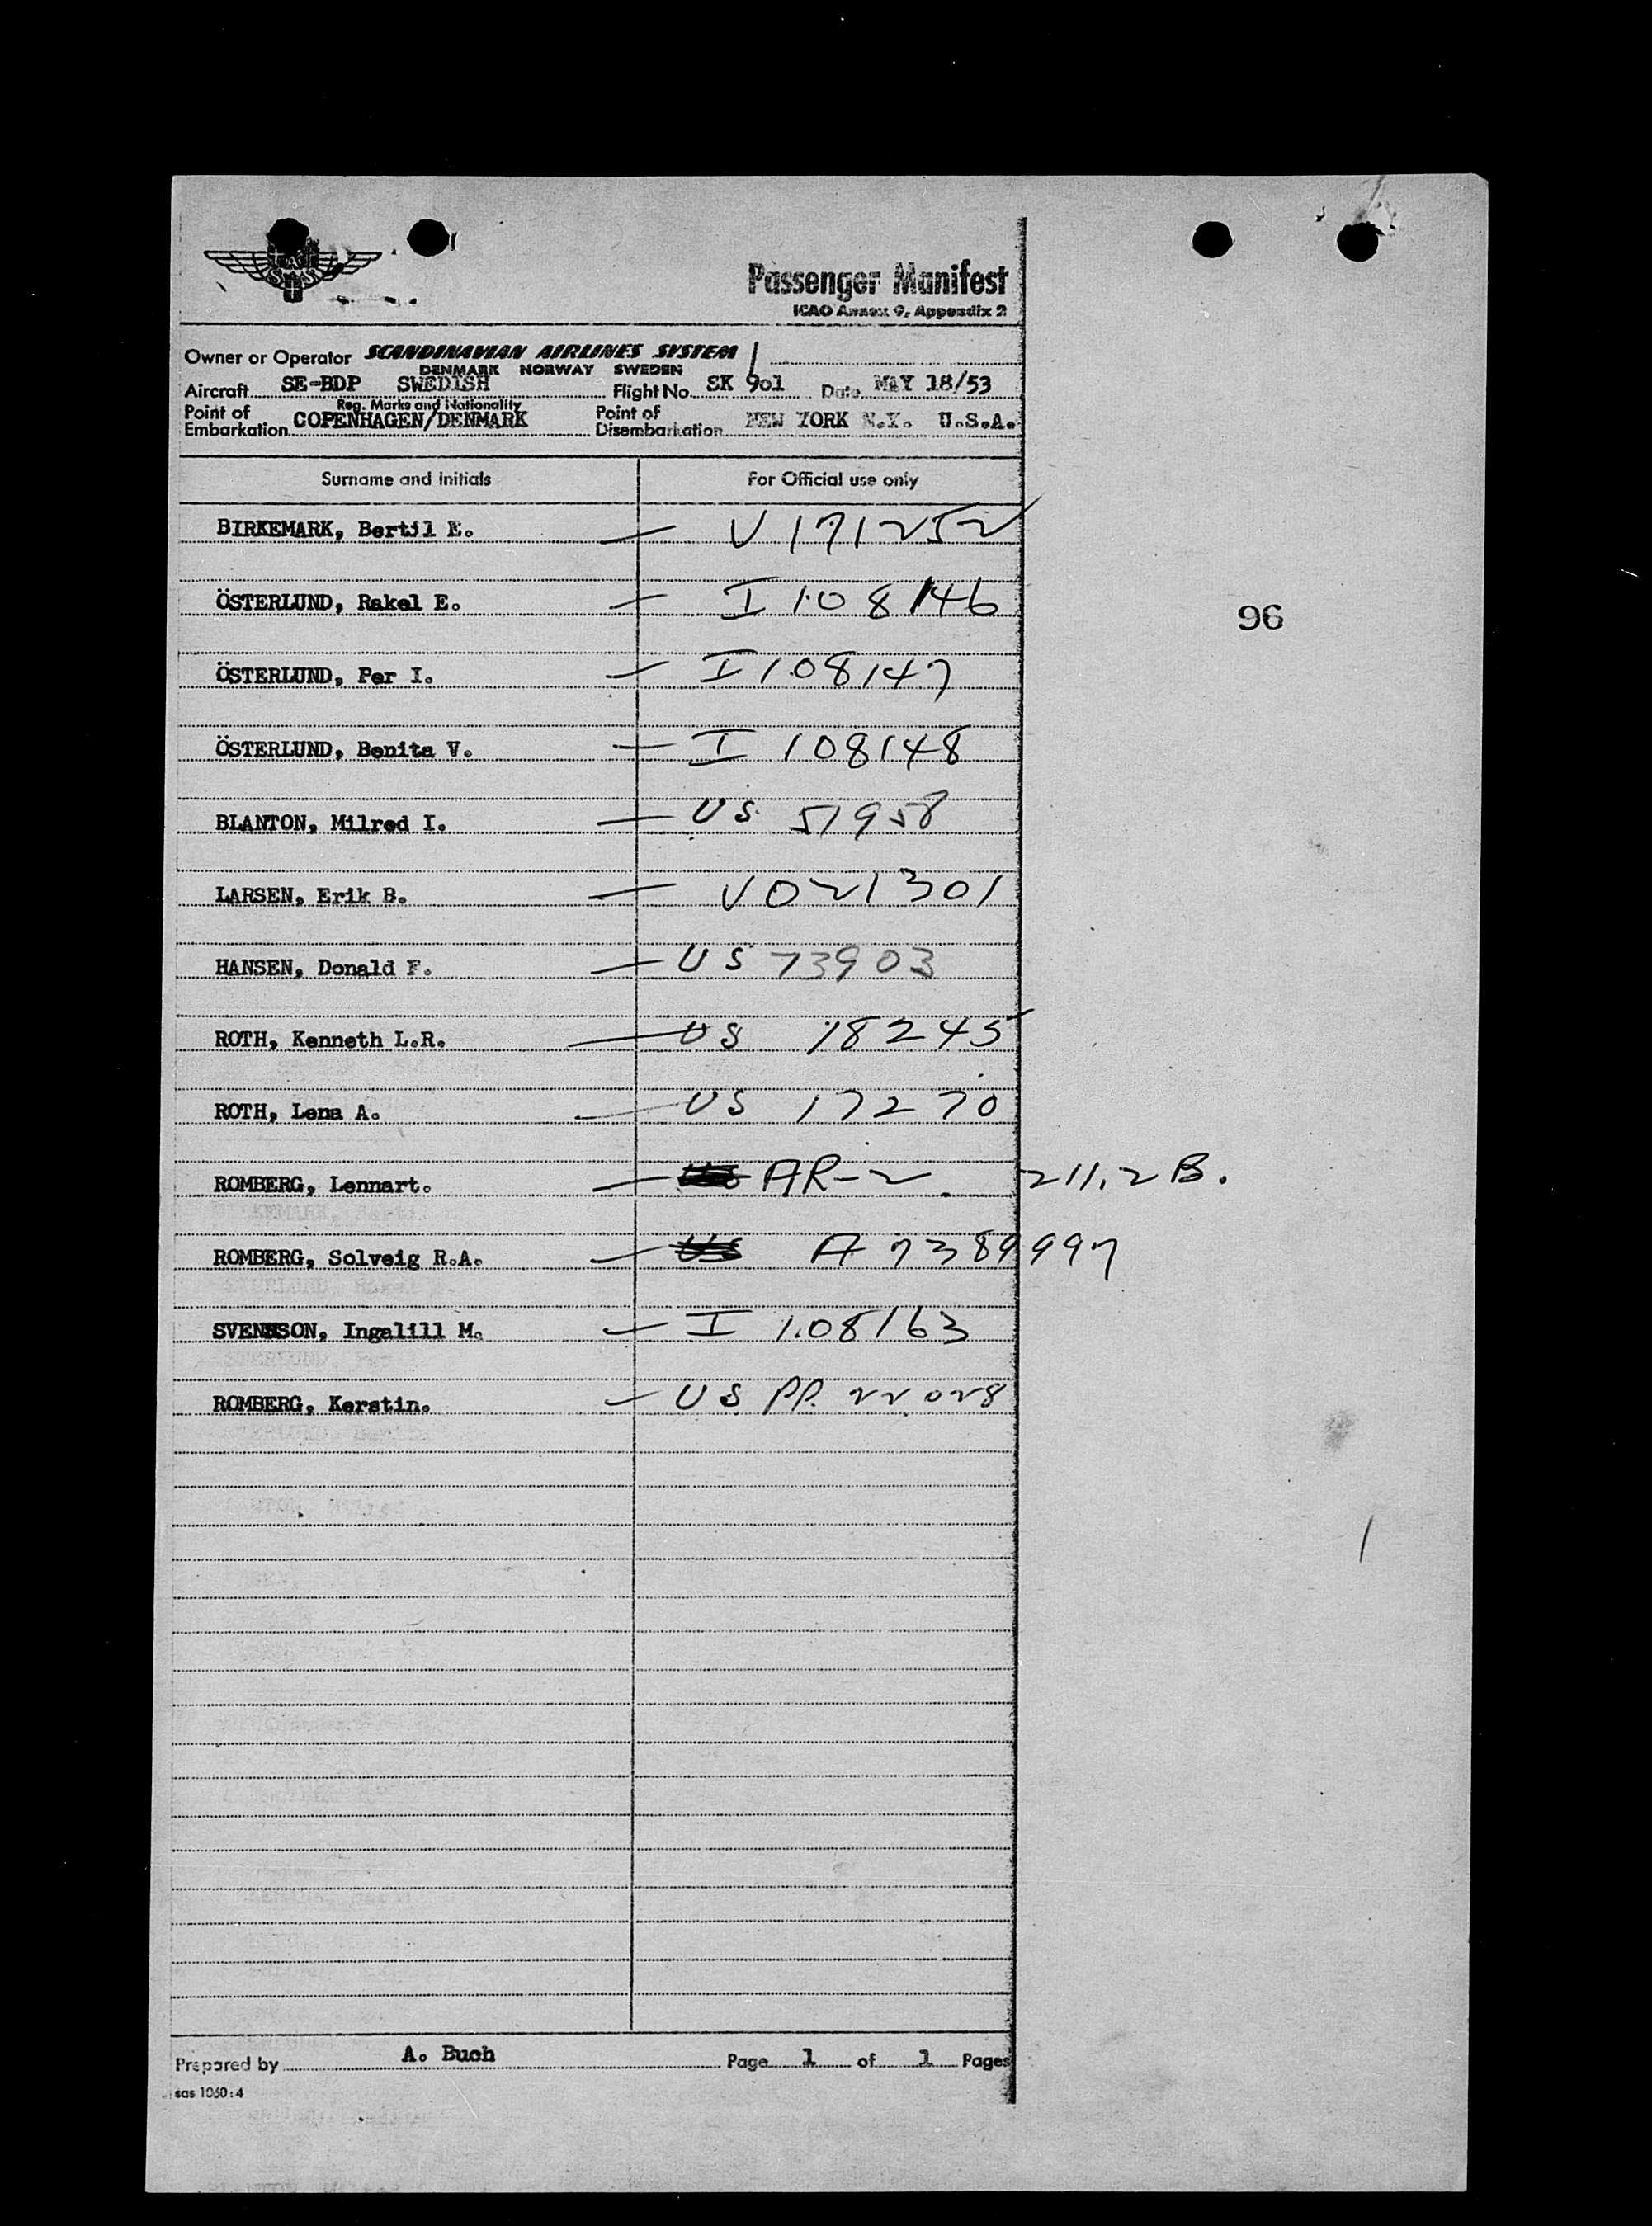 SAS
Passenger Manifest
ICAO Annex 9, Appendix 2
Owner or Operator SCANDINAVIAN AIRLINES SYSTEM
DENMARK NORWAY SWEDEN
Aircraft SE-BDP SWEDISH Flight No. SK 901 Date MAY 18/53
Reg. Marks and Nationality
Point of Embarkation COPENHAGEN/DENMARK Point of Disembarkation NEW YORK N.Y. U.S.A.
Surname and Initials For Official use only
BIRKEMARK, Bertil E. — V 171252
ÖSTERLUND, Rakel E. — I 108146
96
ÖSTERLUND, Per I. — I 108147
ÖSTERLUND, Benita V. — I 108148
BLANTON, Milred I. — US 51958
LARSEN, Erik B. — V 021301
HANSEN, Donald F. — US 73903
ROTH, Kenneth L.R. — US 18245
ROTH, Lena A. — US 17270
ROMBERG, Lennart. — AR-2 211.2 B.
ROMBERG, Solveig R.A. — US A 7389997
SVENSSON, Ingalill M. — I 108163
ROMBERG, Kerstin. — US PP. 22028
Prepared by A. Buch Page 1 of 1 Pages
sas 1060:4